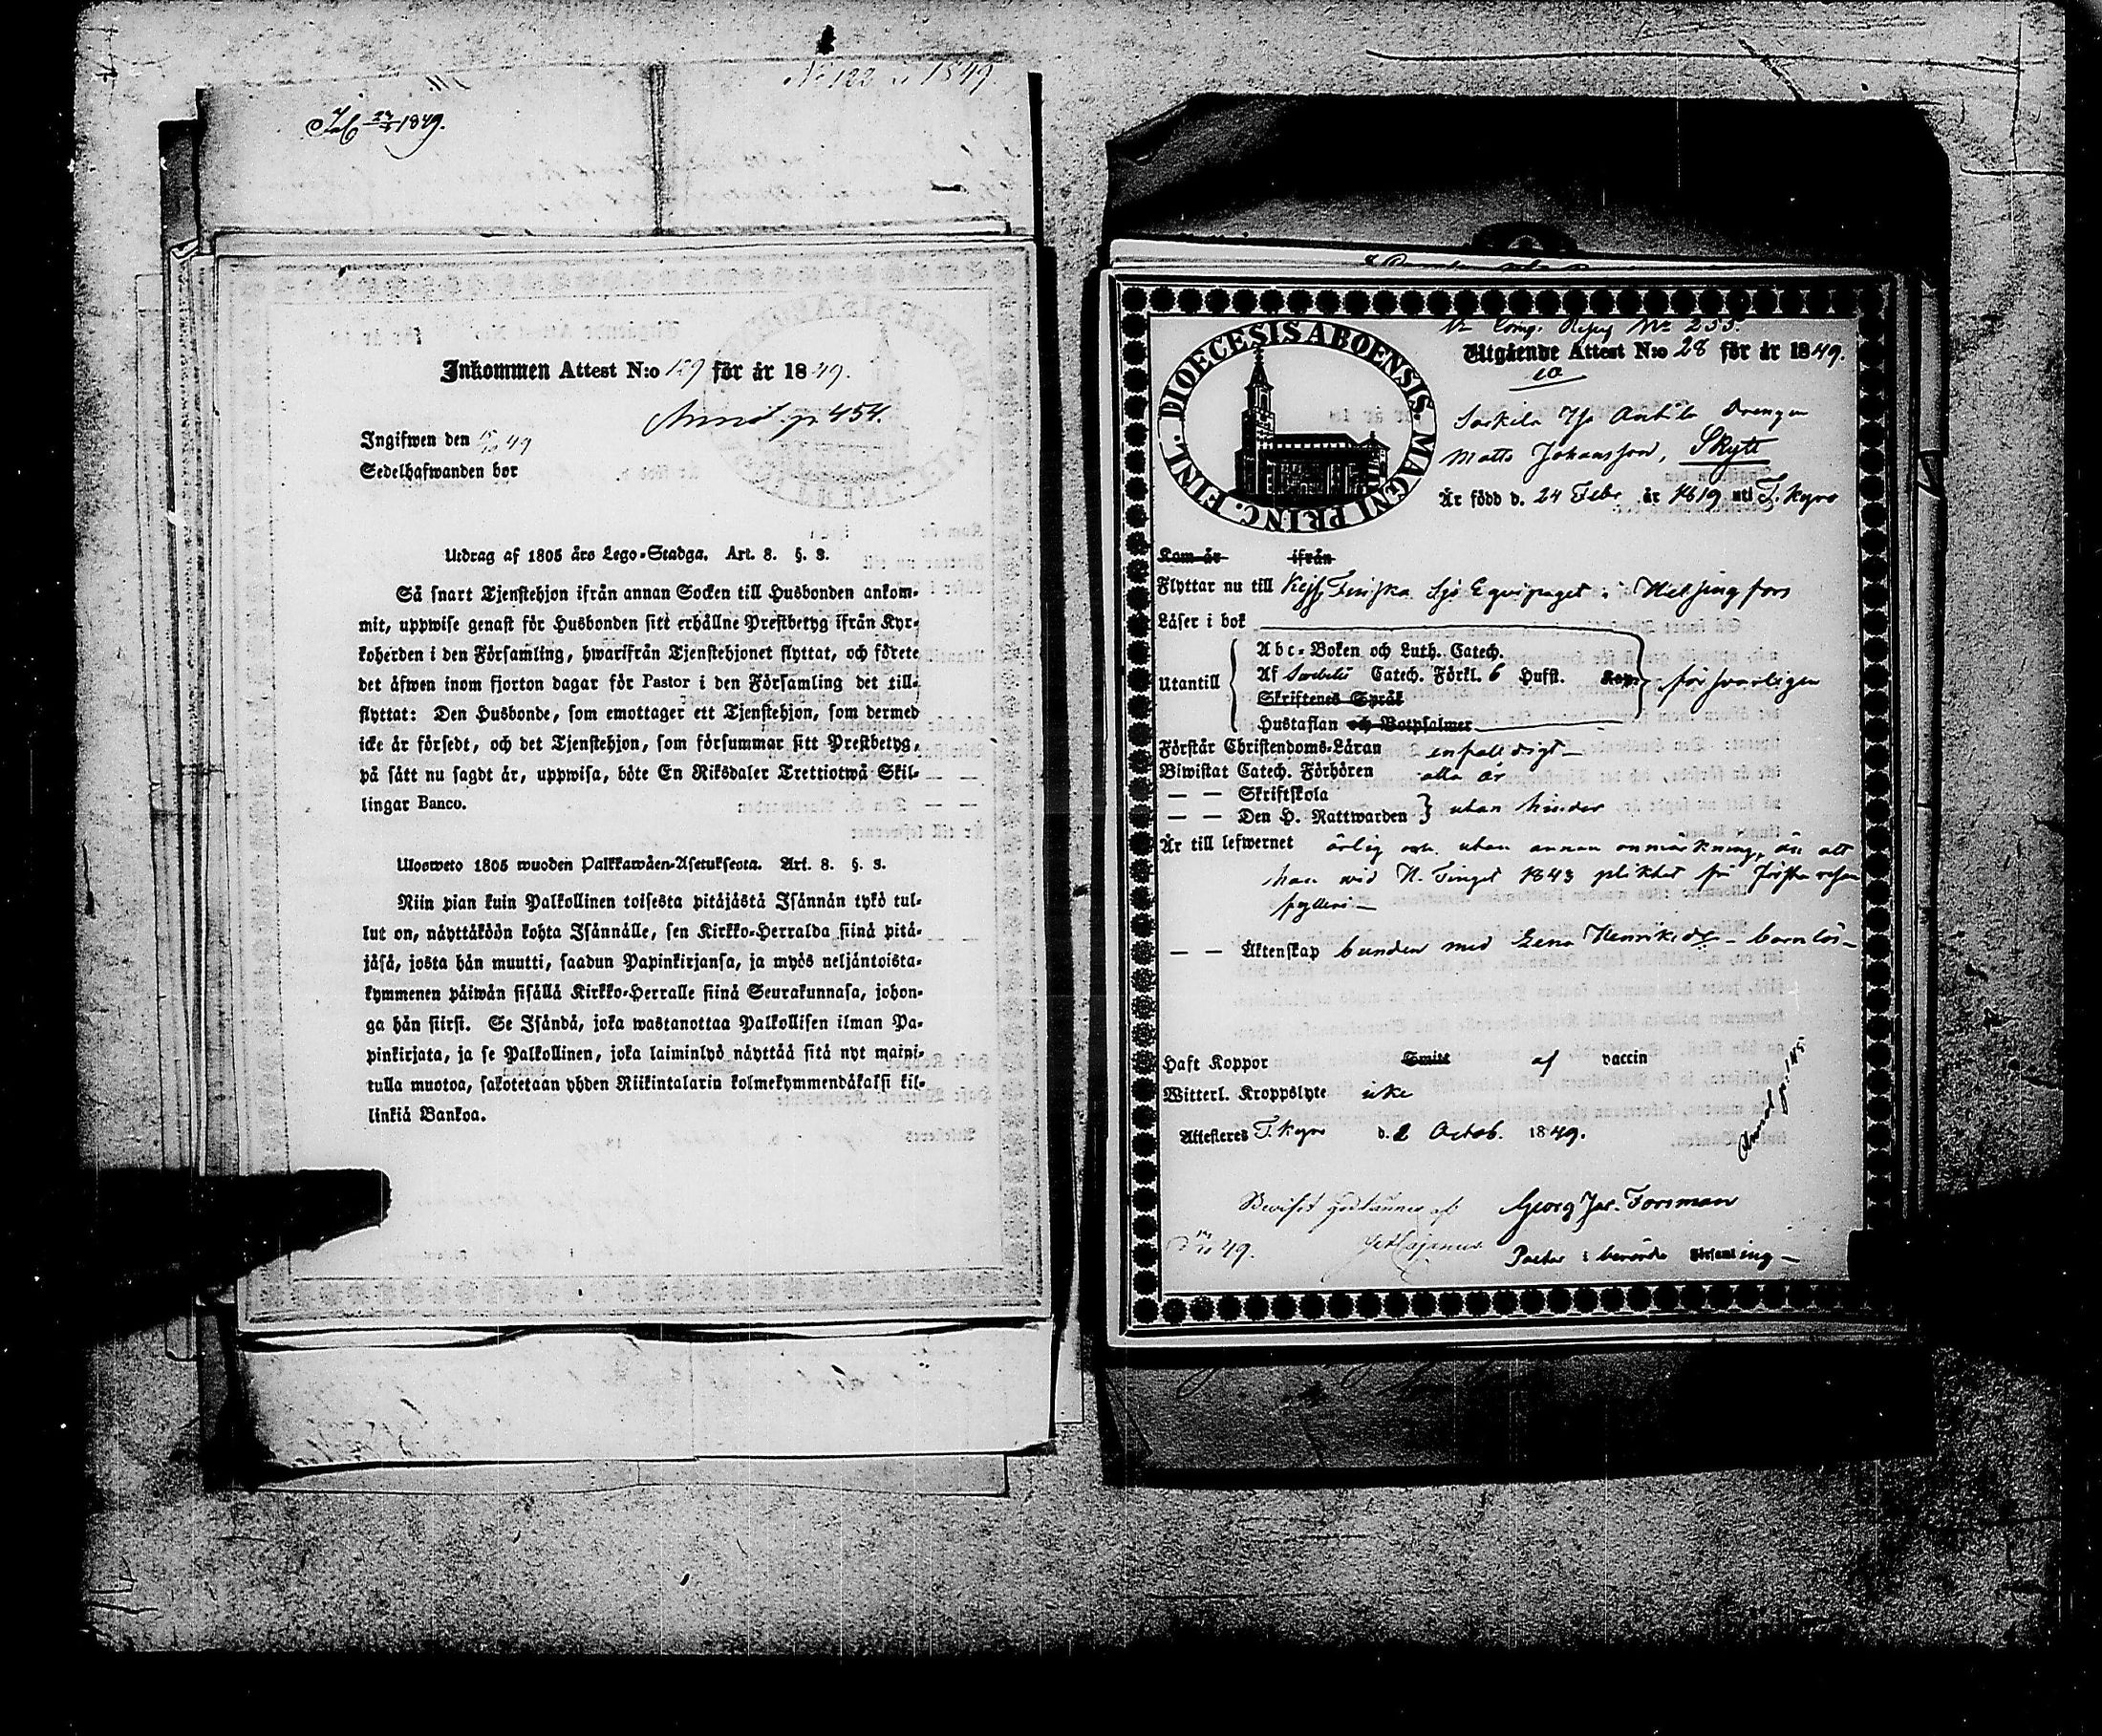 No 122 1849.
Inf 24/5 1849.
Inkommen Attest N:o 129 för år 1849.
Annot. p. 454.
Ingifwen den 15/10 49
Sedelhafwanden bor
Utdrag af 1805 års Lego-Stadga. Art. 8. §. 3.
Så snart Tjenstehjon ifrån annan Socken till Husbonden ankom-
mit, uppwise genast för Husbonden sitt erhållne Prestbetyg ifrån Kyr-
koherden i den Församling, hwarifrån Tjenstehjonet flyttat, och förete
det äfwen inom fjorton dagar för Pastor i den Församling det till-
flyttat: Den Husbonde, som emottager ett Tjenstehjon, som dermed
icke är försedt, och det Tjenstehjon, som försummar sitt Prestbetyg,
på sätt nu sagdt är, uppwisa, böte En Riksdaler Trettiotwå Skil-
lingar Banco.
Ulosweto 1805 wuoden Palkkawäen-Asetuksesta. Art. 8. §. 3.
Niin pian kuin Palkollinen toisesta pitäjästä Isännän tykö tul-
lut on, näyttäköön kohta Isännälle, sen Kirkko-Herralda siinä pitä-
jäsä, josta hän muutti, saadun Papinkirjansa, ja myös neljäntoista-
kymmenen päiwän sisällä Kirkko-Herralle siinä Seurakunnasa, johon-
ga hän siirsi. Se Isändä, joka wastanottaa Palkollisen ilman Pa-
pinkirjata, ja se Palkollinen, joka laiminlyö näyttää sitä nyt maini-
tulla muotoa, sakotetaan yhden Riikintalarin kolmekymmendäkaksi kil-
linkiä Bankoa.
DIOECESIS ABOENSIS. MAGNI PRINC. FINL.
Comp. No 255.
Utgående Attest N:o 28 för år 1849.
10
Antila Drengen
Matts Johansson, Skytt
Är född d. 24 Febr år 1819 uti T. Kyro
Kom år ifrån
Flyttar nu till Kejs. Finska Sjö Equipaget i Helsingfors
Läser i bok
Utantill
Abc-Boken och Luth. Catech.
Af Swebelii Catech. Förkl. 6 Hufst. Kap. försvarligen
Skriftenes Språk
Hustaflan och Botpsalmer
Förstår Christendoms-Läran enfalldigt
Biwistat Catech. Förhören alla år
— — Skriftskola
— — Den H. Nattwarden } utan hinder
Är till lefwernet ärlig och utan annan anmärkning, än att
han wid H. Tinget 1843 pliktat för första resan
fylleri —
— — Äktenskap bunden med Lena Henriksdr — barnlös —
Haft Koppor Smitt af vaccin
Witterl. Kroppslyte icke
Attesteres T. Kyro d. 2 Octob. 1849.
Annot. p. 145.
Beviset godkännes af Georg Jac. Forsman
49. Cajanus Pastor i berörde Församling —